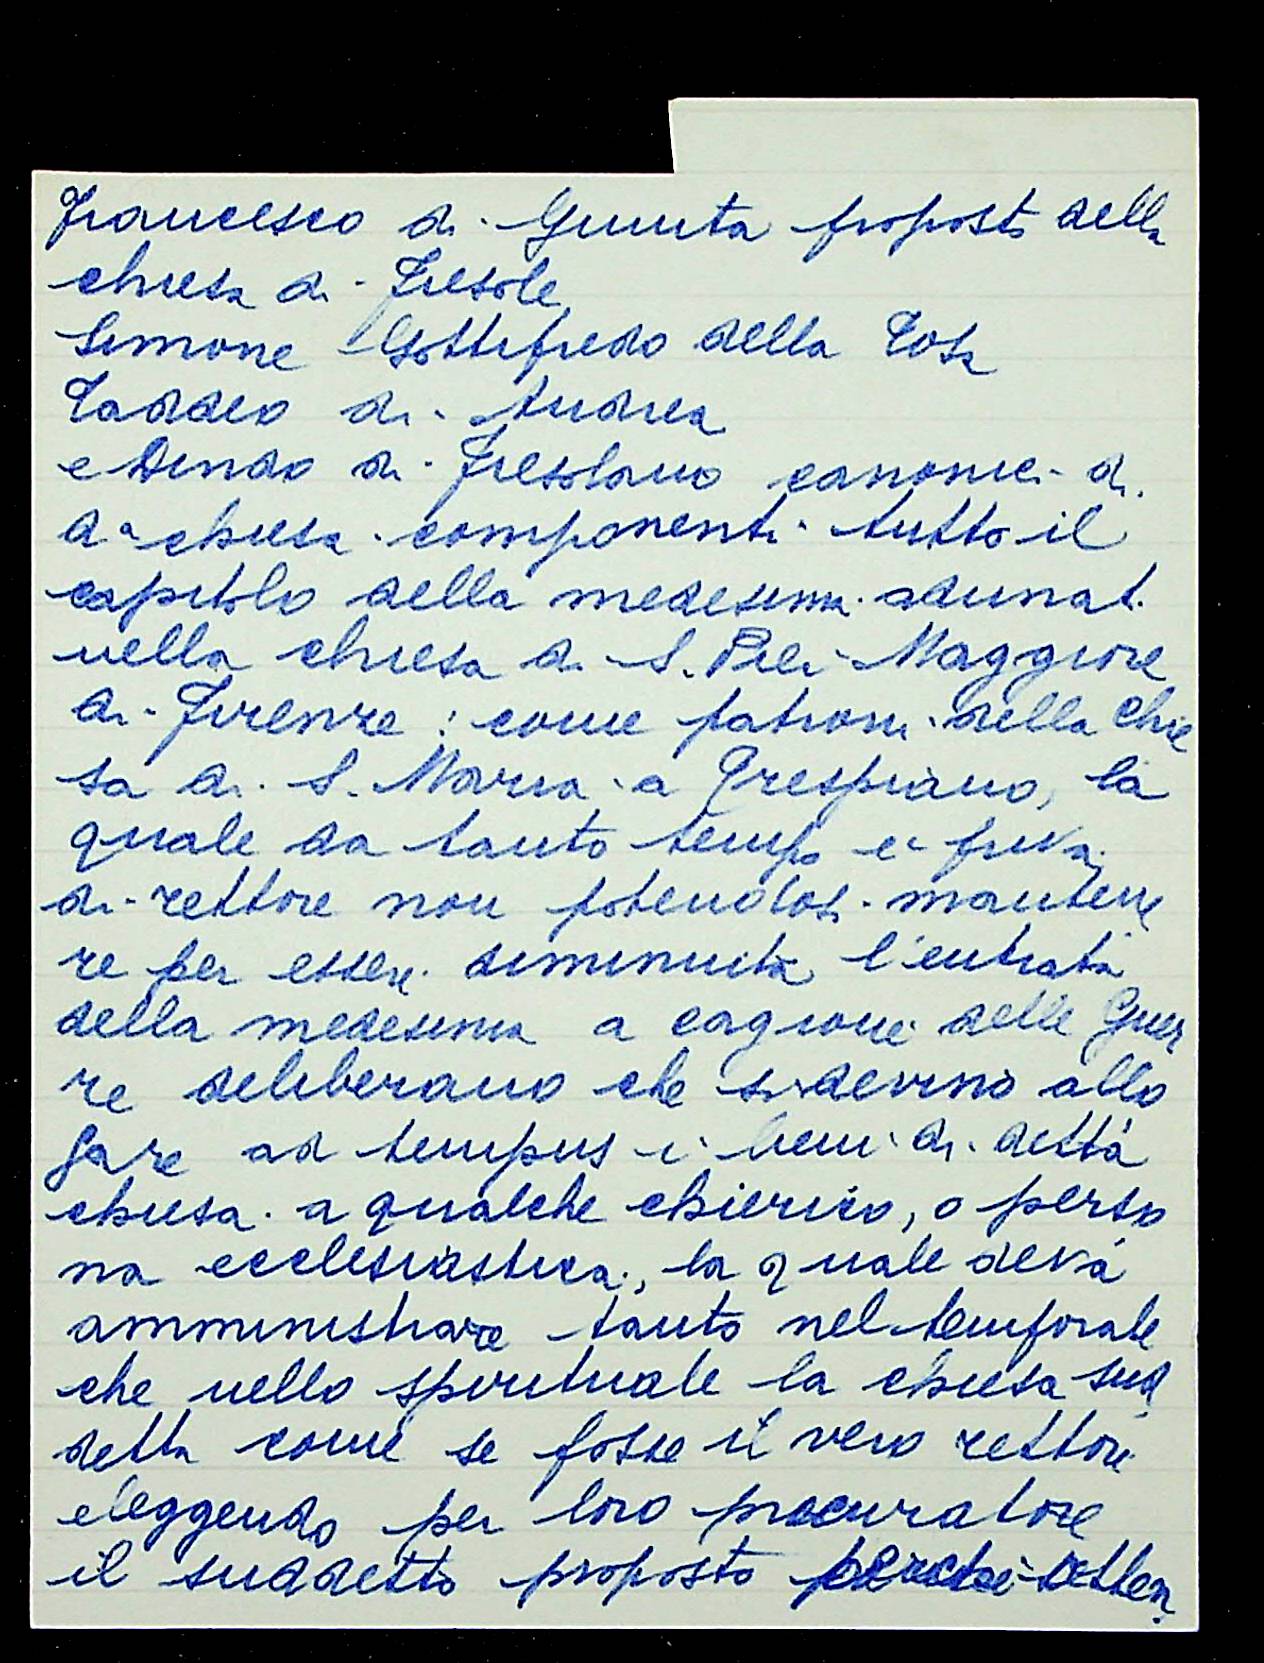 Francesco di Giunta proposto della
chiesa di Fiesole
Simone Gottifredo della Tosa
Taddeo di Andrea
e Dindo di Fiesolano canonici di
da chiesa componenti tutto il
capitolo della medesima adunati
nella chiesa di S. Pier Maggiore
di Firenze: come patroni della chie
sa di S. Maria a Crespiano, la
quale da tanto tempo e priva
di rettore non potendosi mantene
re per essere diminuita l'entrata
della medesima a cagione delle Guer
re deliberano che si devino allo
gare ad tempus i beni di detta
chiesa a qualche chierico, o perso
na ecclesiastica, la quale devà
amministrare tanto nel temporale
che nello spirituale la chiesa sud
detta come se fosse il vero rettore
eleggendo per loro procuratore
il suddetto proposto perche